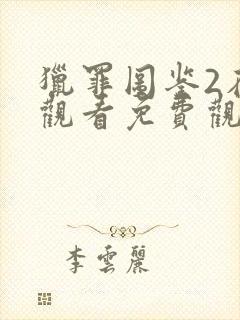 獵罪图鉴2在
觀看免費觀
李雲麗